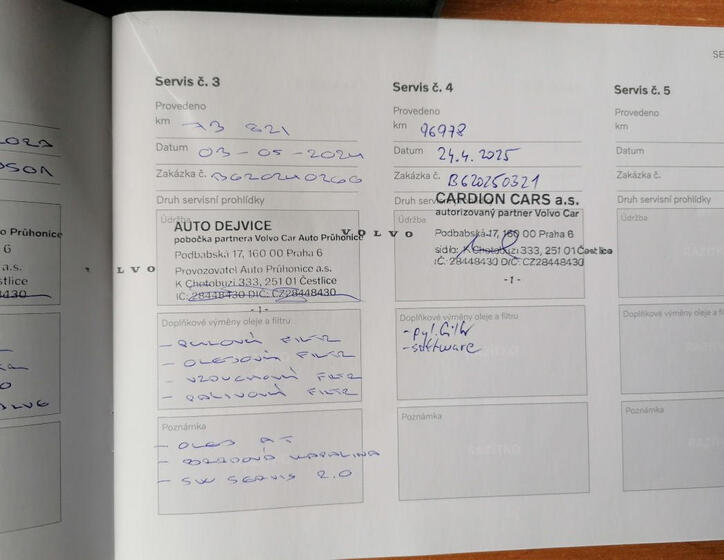 SE
Servis č. 3
Provedeno
km 73 821
Datum 03-05-2024
Zakázka č. B6202410266
Druh servisní prohlídky
Údržba
AUTO DEJVICE
pobočka partnera Volvo Car Auto Průhonice
Podbabská 17, 160 00 Praha 6
Provozovatel Auto Průhonice a.s.
K Chotobuzi 333, 251 01 Čestlice
IČ: 28448430 DIČ: CZ28448430
- 1 -
Doplňkové výměny oleje a filtru
- PYLOVÝ FILTR
- OLEJOVÝ FILTR
- VZDUCHOVÝ FILTR
- PALIVOVÝ FILTR
Poznámka
- OLEJ AT
- BRZDOVÁ KAPALINA
- SW SERVIS 2.0
VOLVO
Servis č. 4
Provedeno
km 96978
Datum 24.4.2025
Zakázka č. B620250321
Druh servisní prohlídky
Údržba
CARDION CARS a.s.
autorizovaný partner Volvo Car
Podbabská 17, 160 00 Praha 6
sídlo: K Chotobuzi 333, 251 01 Čestlice
IČ: 28448430 DIČ: CZ28448430
- 1 -
Doplňkové výměny oleje a filtru
- pyl. filtr
- software
Poznámka
Servis č. 5
Provedeno
km
Datum
Zakázka č.
Druh servisní prohlídky
Údržba
Doplňkové výměny oleje a filtru
Poznámka
RAZÍTKO
o Průhonice
6
a.s.
stlice
8430
LVO